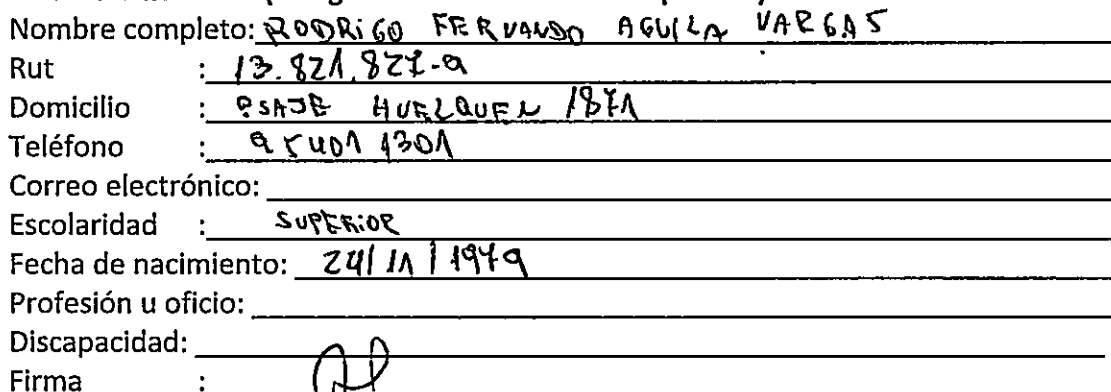 Nombre completo: RODRIGO FERNANDO AGUILA VARGAS
Rut : 13.821.827-9
Domicilio : PSAJE HUELQUEN 1871
Teléfono : 9 5401 1301
Correo electrónico:
Escolaridad : SUPERIOR
Fecha de nacimiento: 24/11/1979
Profesión u oficio:
Discapacidad:
Firma :